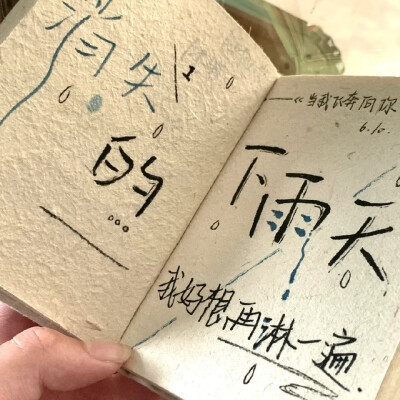 消失
的...
——《当我飞奔向你
6.10.
下雨天
我好想再淋一遍.